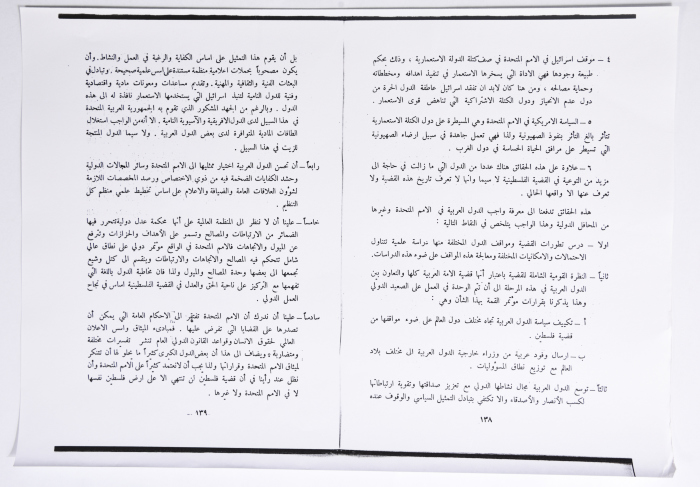 ٤ – موقف اسرائيل في الامم المتحدة في صف كتلة الدولة الاستعمارية ، وذلك بحكم
طبيعة وجودها فهي الاداة التي يسخرها الاستعمار في تنفيذ اهدافه ومخططاته
وحماية مصالحه ، ومن هنا كان لابد ان تفقد اسرائيل عاطفة الدول الحرة من
دول عدم الانحياز ودول الكتلة الاشتراكية التي تناهض قوى الاستعمار .
٥ – السياسة الامريكية في الامم المتحدة وهي المسيطرة على دول الكتلة الاستعمارية
تتأثر بالغ التأثر بنفوذ الصهيونية ولذا فهي تعمل جاهدة في سبيل ارضاء الصهيونية
التي تسيطر على مرافق الحياة الحساسة في دول الغرب .
٦ – علاوة على هذه الحقائق هناك عددا من الدول التي ما زالت في حاجة الى
مزيد من التوعية في القضية الفلسطينية لا سيما وانها لا تعرف تاريخ هذه القضية ولا
تعرف عنها الا واقعها الحالي .
هذه الحقائق تدفعنا الى معرفة واجب الدول العربية في الامم المتحدة وغيرها
من المحافل الدولية وهذا الواجب يتلخص في النقاط التالية :
اولا – درس تطورات القضية ومواقف الدول المختلفة منها دراسة علمية تتناول
الاحتمالات والامكانيات المختلفة ومعالجة هذه المواقف على ضوء هذه الدراسات.
ثانياً – النظرة القومية الشاملة للقضية باعتبار أنها قضية الامة العربية كلها والتعاون بين
الدول العربية في هذه المرحلة الى أن تتم الوحدة في العمل على الصعيد الدولي
وهذا يذكرنا بقرارات مؤتمر القمة بهذا الشأن وهي :
أ – تكييف سياسة الدول العربية تجاه مختلف دول العالم على ضوء مواقفها من
قضية فلسطين .
ب – ارسال وفود عربية من وزراء خارجية الدول العربية الى مختلف بلاد
العالم مع توزيع نطاق المسؤوليات .
ثالثاً – توسع الدول العربية مجال نشاطها الدولي مع تعزيز صداقتها وتقوية ارتباطاتها
لكسب الأنصار والأصدقاء والا تكتفي بتبادل التمثيل السياسي والوقوف عنده
١٣٨
بل أن يقوم هذا التمثيل على اساس الكفاية والرغبة في العمل والنشاط. وأن
يكون مصحوباً بحملات اعلامية منظمة مستندة على اسس علمية صحيحة . وتبادل في
البعثات الفنية والثقافية والمهنية . وتقديم مساعدات ومعونات مادية واقتصادية
وفنية للدول النامية لتنبذ اسرائيل التي يستخدمها الاستعمار نافذة له الى هذه
الدول . وبالرغم من الجهد المشكور الذي تقوم به الجمهورية العربية المتحدة
في هذا السبيل لدى الدول الافريقية والآسيوية النامية . الا أنه من الواجب استغلال
الطاقات المادية المتوافرة لدى بعض الدول العربية . ولا سيما الدول المنتجة
للزيت في هذا السبيل .
رابعاً – أن تحسن الدول العربية اختيار ممثليها الى الامم المتحدة وسائر المجالات الدولية
وحشد الكفايات الضخمة فيه من ذوي الاختصاص ورصد المخصصات اللازمة
لشؤون العلاقات العامة والضيافة والاعلام على اساس تخطيط علمي منظم كل
التنظيم .
خامساً – علينا أن لا ننظر الى المنظمة العالمية على أنها محكمة عدل دولية تتحرر فيها
الضمائر من الارتباطات والمصالح وتسمو على الأهداف والحزازات وتترفع
عن الميول والاتجاهات فالامم المتحدة في الواقع مؤتمر دولي على نطاق عالمي
شامل تتحكم فيه المصالح والاتجاهات والارتباطات وينقسم الى كتل وشيع
تجمعها الى بعضها وحدة المصالح والميول ولذا فان مخاطبة الدول باللغة التي
تفهمها مع التركيز على ناحية الحق والعدل في القضية الفلسطينية اساس في نجاح
العمل الدولي .
سادساً – علينا أن ندرك أن الامم المتحدة تفتقر الى الاحكام العامة التي يمكن أن
تصدرها على القضايا التي تفرض عليها . فمبادىء الميثاق واسس الاعلان
العالمي لحقوق الانسان وقواعد القانون الدولي العام تفسيرات مختلفة
ومتضاربة ويضاف الى هذا أن بعض الدول الكبرى كثيراً ما يحلو لها أن تتنكر
لميثاق الامم المتحدة وقراراتها ولذا يجب أن لا نعتمد كثيراً على الامم المتحدة وأن
نظل عند رأينا في أن قضية فلسطين لن تنتهي الا على ارض فلسطين نفسها
لا في الامم المتحدة ولا غيرها .
١٣٩